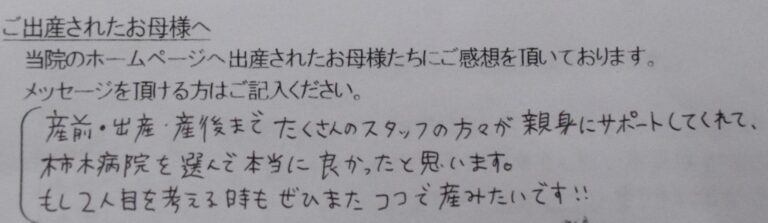 ご出産されたお母様へ
当院のホームページへ出産されたお母様たちにご感想を頂いております。
メッセージを頂ける方はご記入ください。
産前・出産・産後まで たくさんのスタッフの方々が 親身にサポートしてくれて、
柿木病院を選んで本当に良かったと思います。
もし2人目を考える時も ぜひまた ココで産みたいです!!